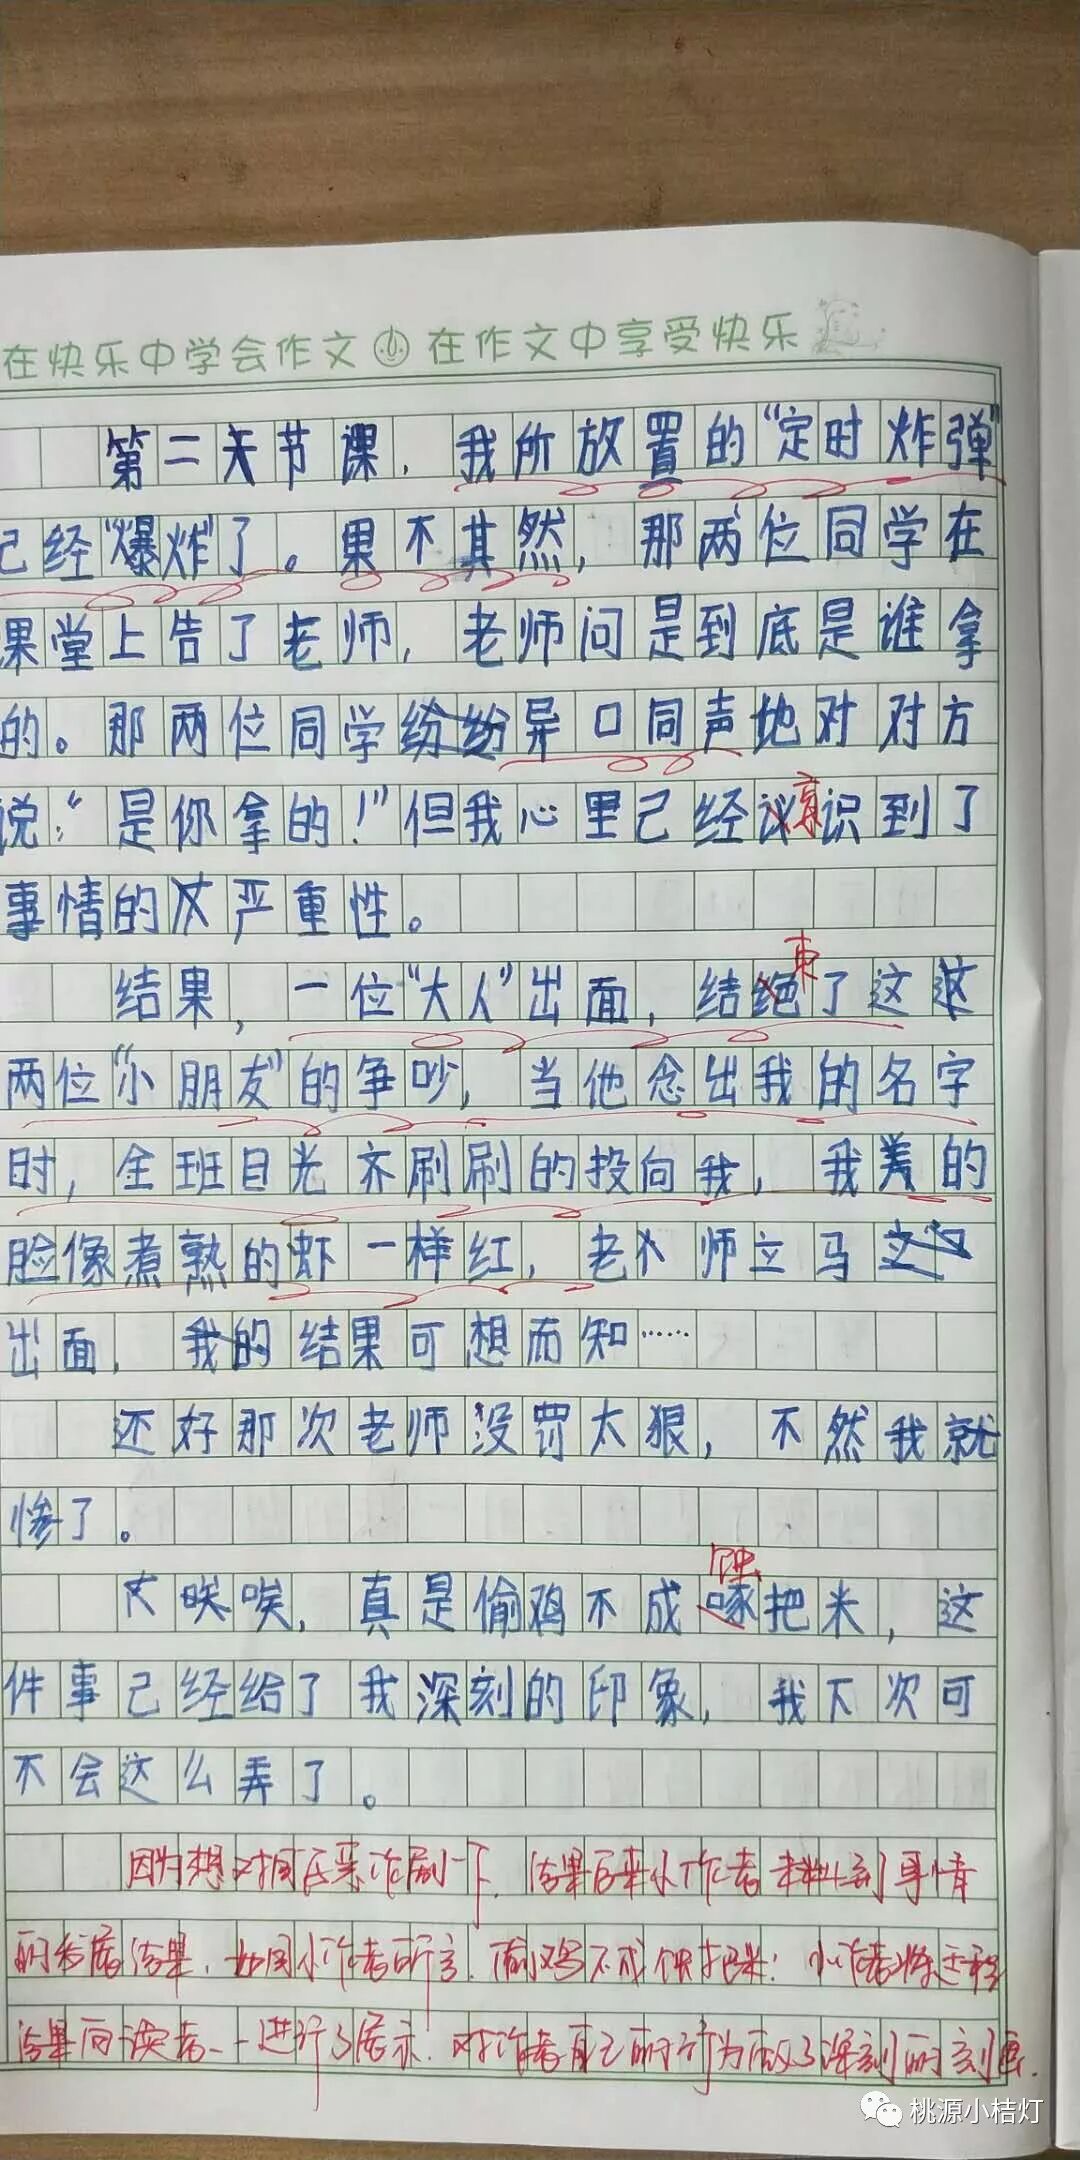 在快乐中学会作文 在作文中享受快乐
第二天节课，我所放置的“定时炸弹”
已经“爆炸”了。果不其然，那两位同学在
课堂上告了老师，老师问是到底是谁拿
的。那两位同学纷纷异口同声地对对方
说：“是你拿的！”但我心里已经议意识到了
事情的严重性。
结果，一位“大人”出面，结绝束了这这
两位“小朋友”的争吵，当他念出我的名字
时，全班目光齐刷刷的投向我，我羞的
脸像煮熟的虾一样红，老师立马
出面，我的结果可想而知……
还好那次老师没罚太狠，不然我就
惨了。
唉唉，真是偷鸡不成啄蚀把米，这
件事已经给了我深刻的印象，我下次可
不会这么弄了。
因为想对同桌恶作剧一下，结果后来小作者未料到事情
的发展结果，如同小作者所言，偷鸡不成蚀把米！小作者将过程
结果向读者一一进行了展示！对作者自己的行为做了深刻的刻画.
桃源小桔灯